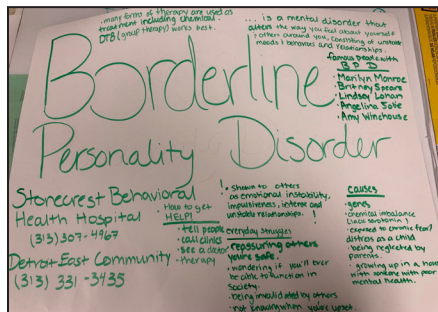 · many forms of therapy are used as
treatment including chemical.
DTB (group therapy) works best.
... is a mental disorder that
alters the way you feel about yourself
/ others around you, consisting of unstable
moods, behaviors and relationships.
famous people with
BPD
· Marilyn Monroe
· Britney Spears
· Lindsey Lohan
· Angelina Jolie
· Amy Winehouse
Borderline
Personality Disorder
Stonecrest Behavioral
Health Hospital
(313)307-4967
Detroit-East Community
(313) 331-3435
how to get
HELP!
· tell people
· call clinics
· see a doctor
· therapy
! · Shown to others
as emotional instability,
impulsiveness, intense and
unstable relationships. !
everyday struggles
· reassuring others
you're safe.
· wondering if you'll ever
be able to function in
society.
· being invalidated by others
· not knowing when you're upset.
causes
· genes
· chemical imbalance
(lack serotonin)
· exposed to chronic fear/
distress as a child
· being neglected by
parents.
· growing up in a house
with someone with poor
mental health.